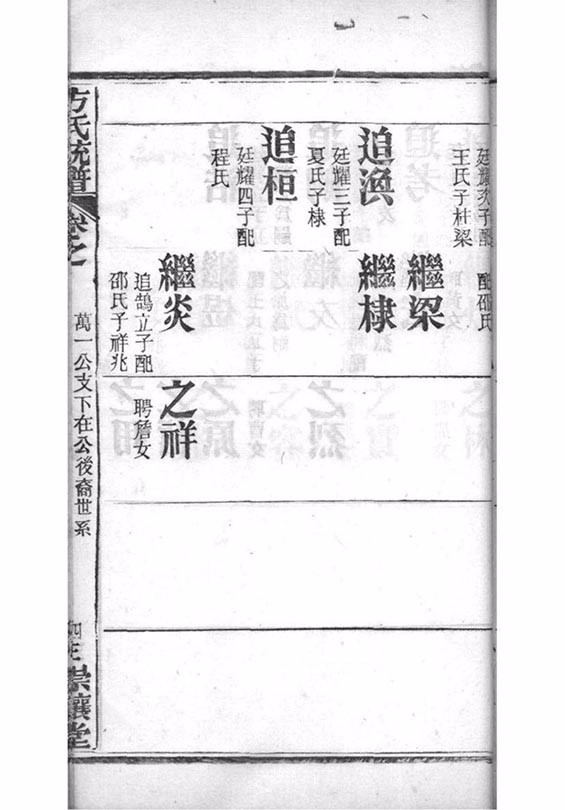 廷耀次子配
王氏子杜梁
配邵氏
繼梁
追渙
廷耀三子配
夏氏子棣
繼棣
追桓
廷耀四子配
程氏
繼炎
追鵠立子配
邵氏子祥兆
之祥
聘詹女
方氏統譜
卷之
萬一公支下在公後裔世系
崇讓堂